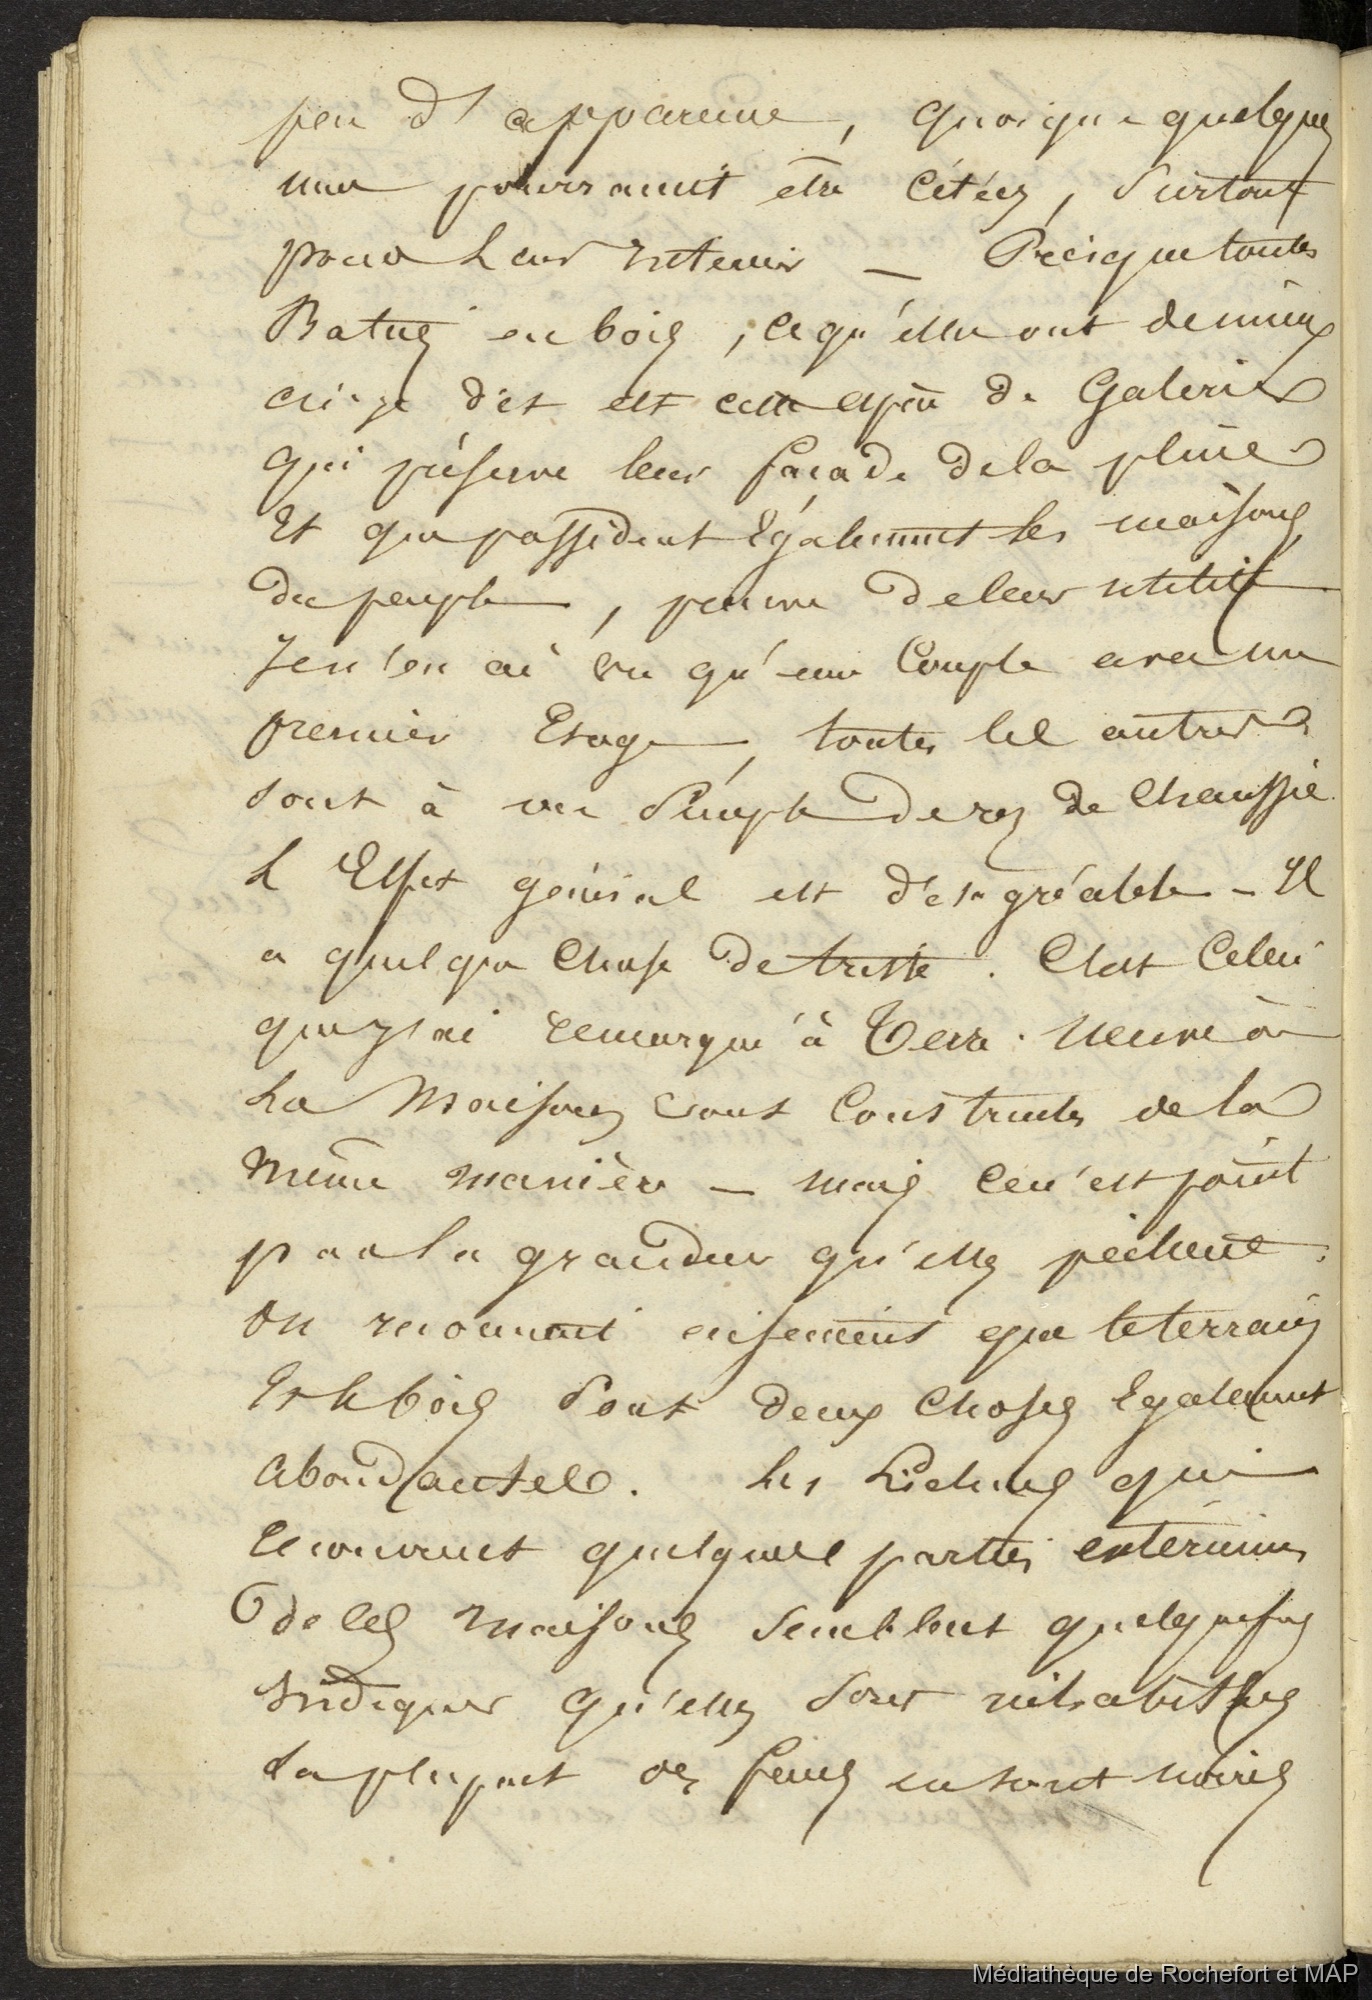 peu d'apparence, quoique quelques
unes pourraient être citées, surtout
pour leur intérieur — Presque toutes
Baties en bois, ce qu'elles ont de mieux
ai-je dit est cette espèce de Galerie
qui préserve leur façade de la pluie
Et que possèdent Également les maisons
du peuple, preuve de leur utilité
Je n'en ai vu qu'une Couple avec un
premier Etage, toutes les autres
sont à un Simple De rez de Chaussée
L Effet général est désagréable - Il
a quelque Chose de triste. C'est Celui
que j'ai remarqué à Terre-neuve où
Les Maisons sont Construites de la
même manière — mais Ce n'est point
par la grandeur qu'elles pèchent.
On reconnait aisément que le terrain
Et le bois Sont deux Choses Egalement
Abondantes. Les Lichens qui
recouvrent quelques parties extérieures
de ces Maisons semblent quelquefois
Indiquer qu'elles sont inhabitées
La plupart des en sont noires